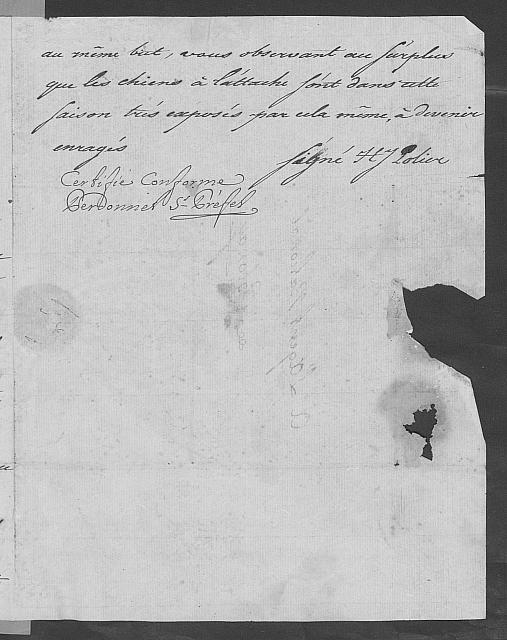 au même but, vous observant au surplus
que les chiens à l'attache sont dans cette
saison trés exposés par cela même, à devenir
enragés
signé HJ Polier
Certifié Conforme
Perdonnet St Préfet